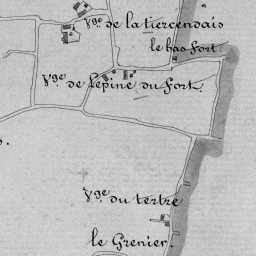 Vge de la tiercendais
le bas fort
Vge de l'epine du fort.
Vge du tertre
le Grenier.